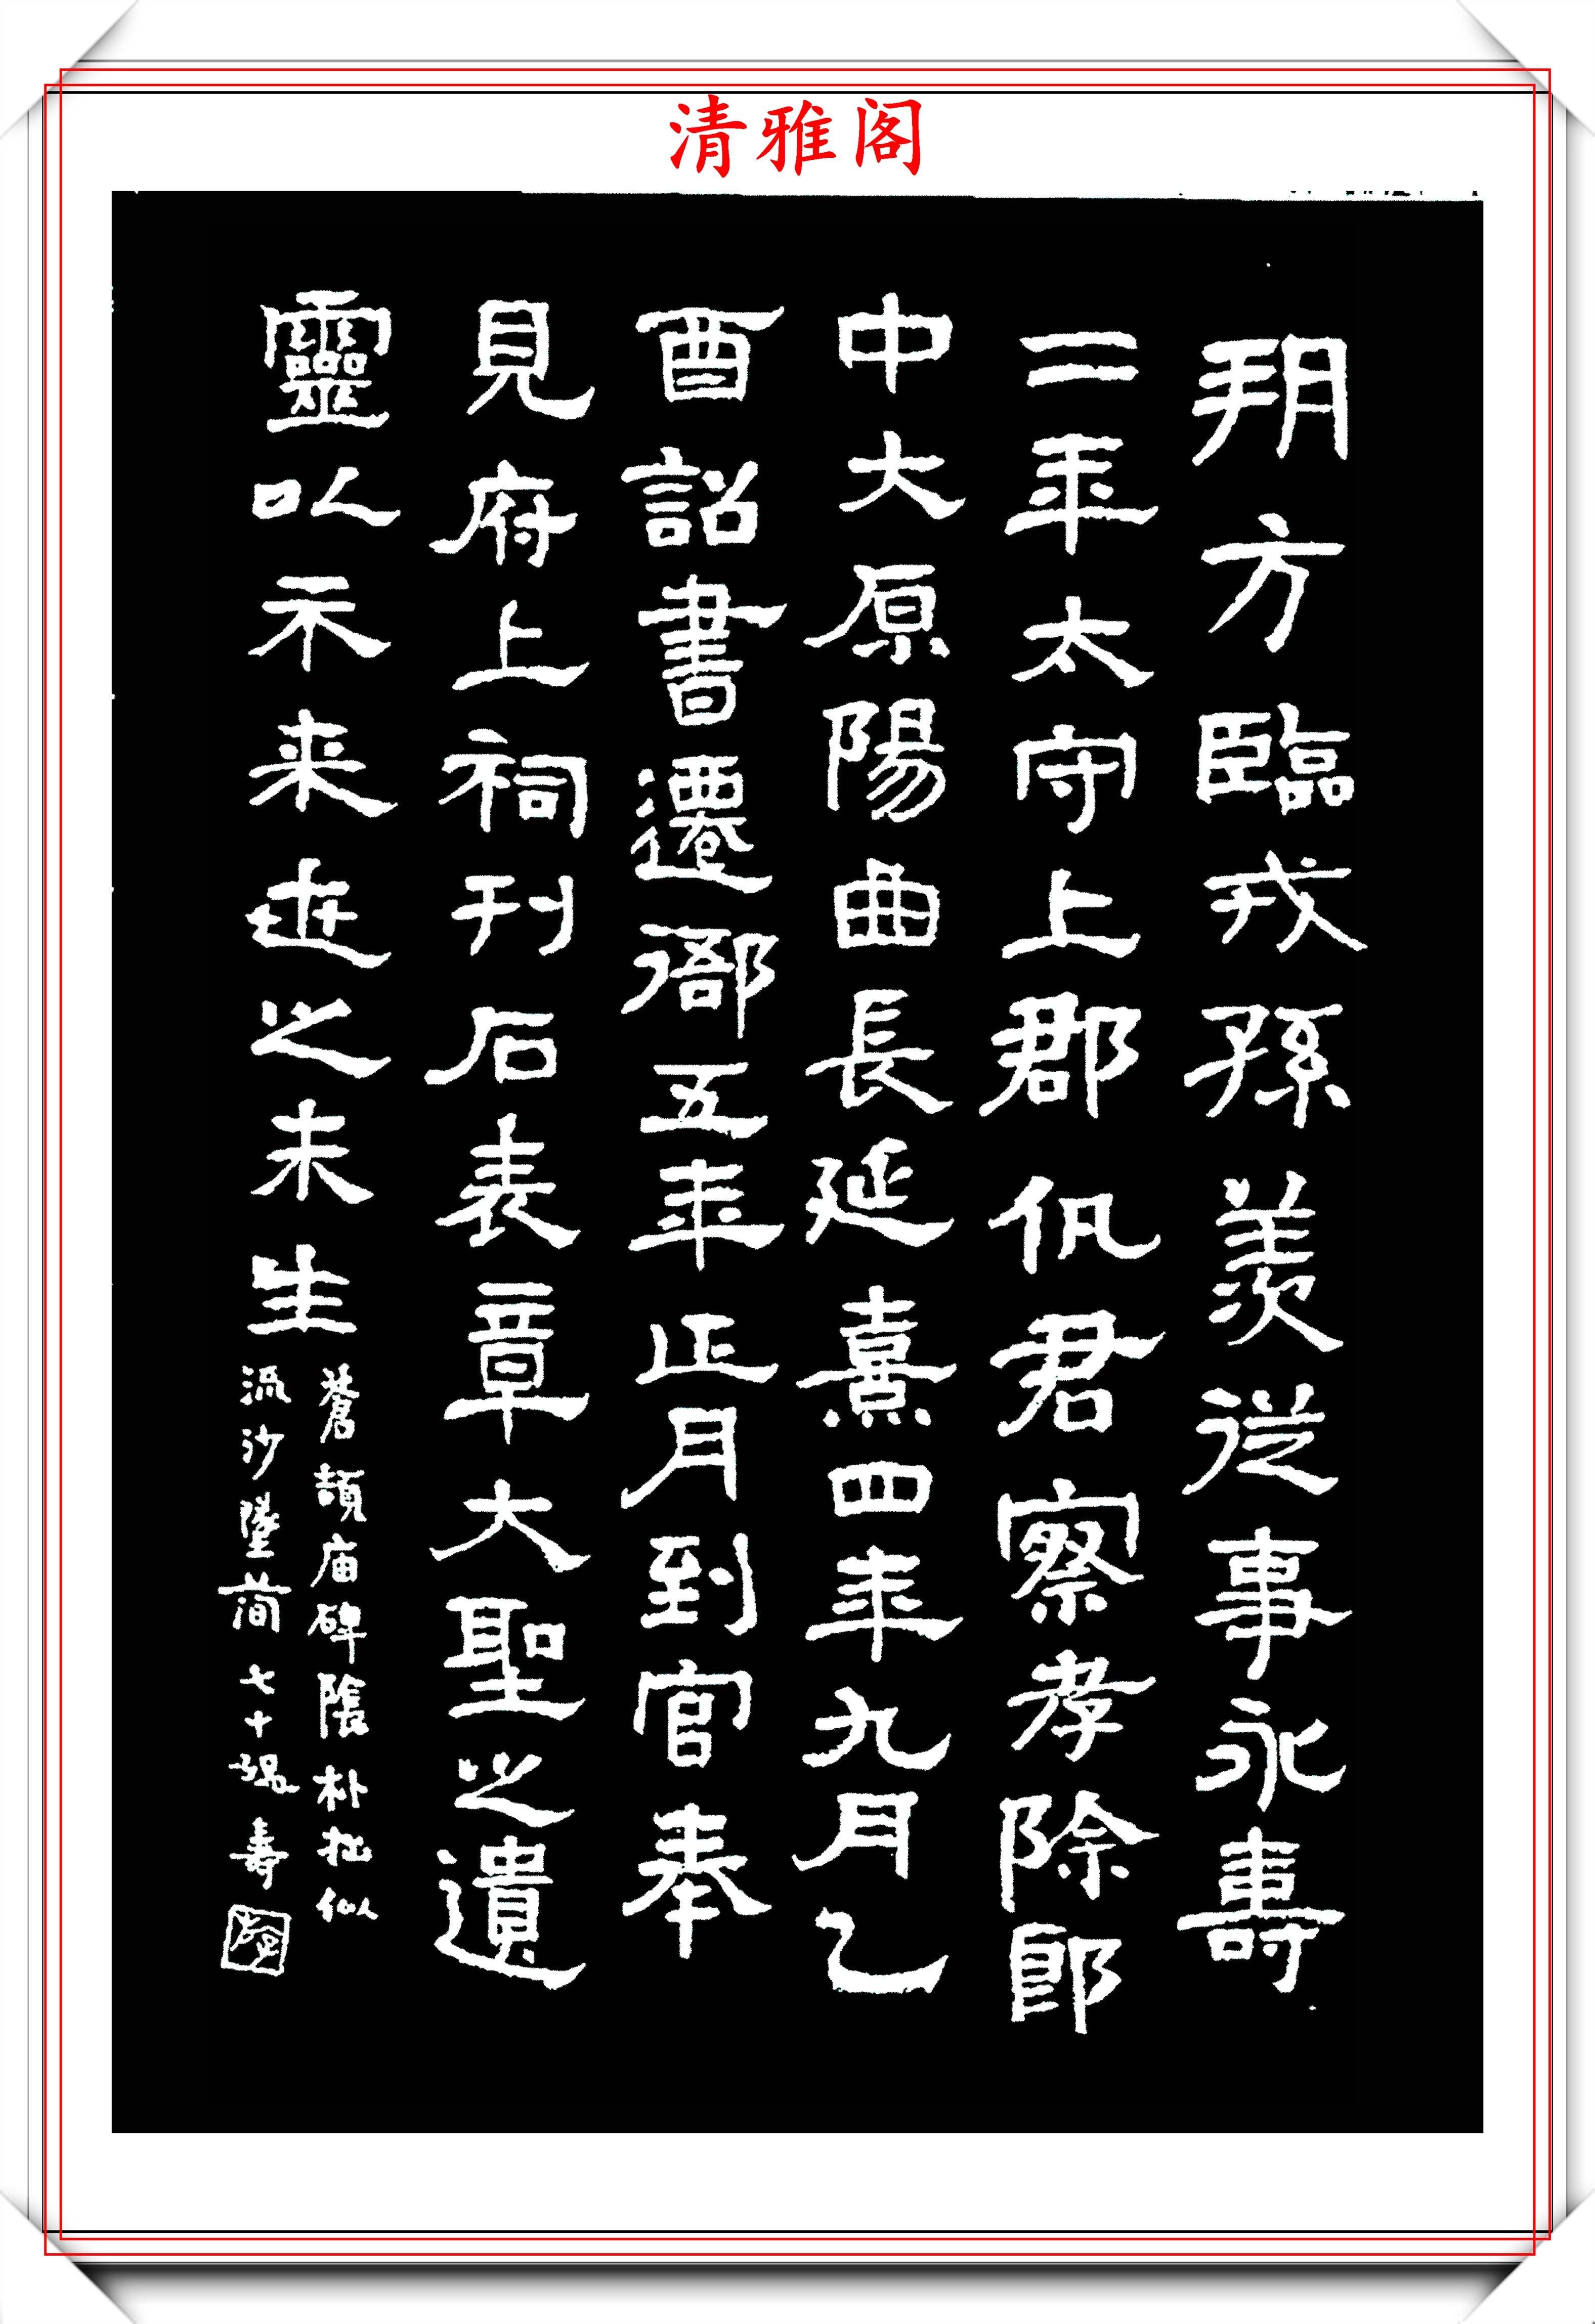 清雅阁
朔方臨戎孫羨從事永壽
二年太守上郡仇君察孝除郎
中大原陽曲長延熹四年九月乙
酉詔書遷衙五年正月到官奉
見府上祠刊石表章大聖之遺
靈以示来世之未生
蒼頡庙碑陰朴拙似
流沙墜简七十 壽